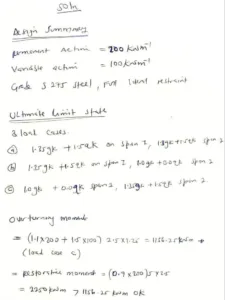 Soln
Design Summary
Permanent Action = 200 kN/m
Variable action = 100 kN/m
Grade S 275 steel, full lateral restraint
Ultimate limit state
3 load cases
(a) 1.35gk + 1.5qk on span 1, 1.35gk + 1.5qk span 2
(b) 1.35gk + 1.5qk on span 1, 1.0gk + 0.0qk span 2
(c) 1.0gk + 0.0qk span 1, 1.35gk + 1.5qk span 2
Overturning moment
= (1.1×200 + 1.5×100) 2.5×1.25 = 1156.25 kNm
(load case c)
= restorative moment = (0.9×200)5×2.5
= 2250 kNm > 1156.25 kNm OK